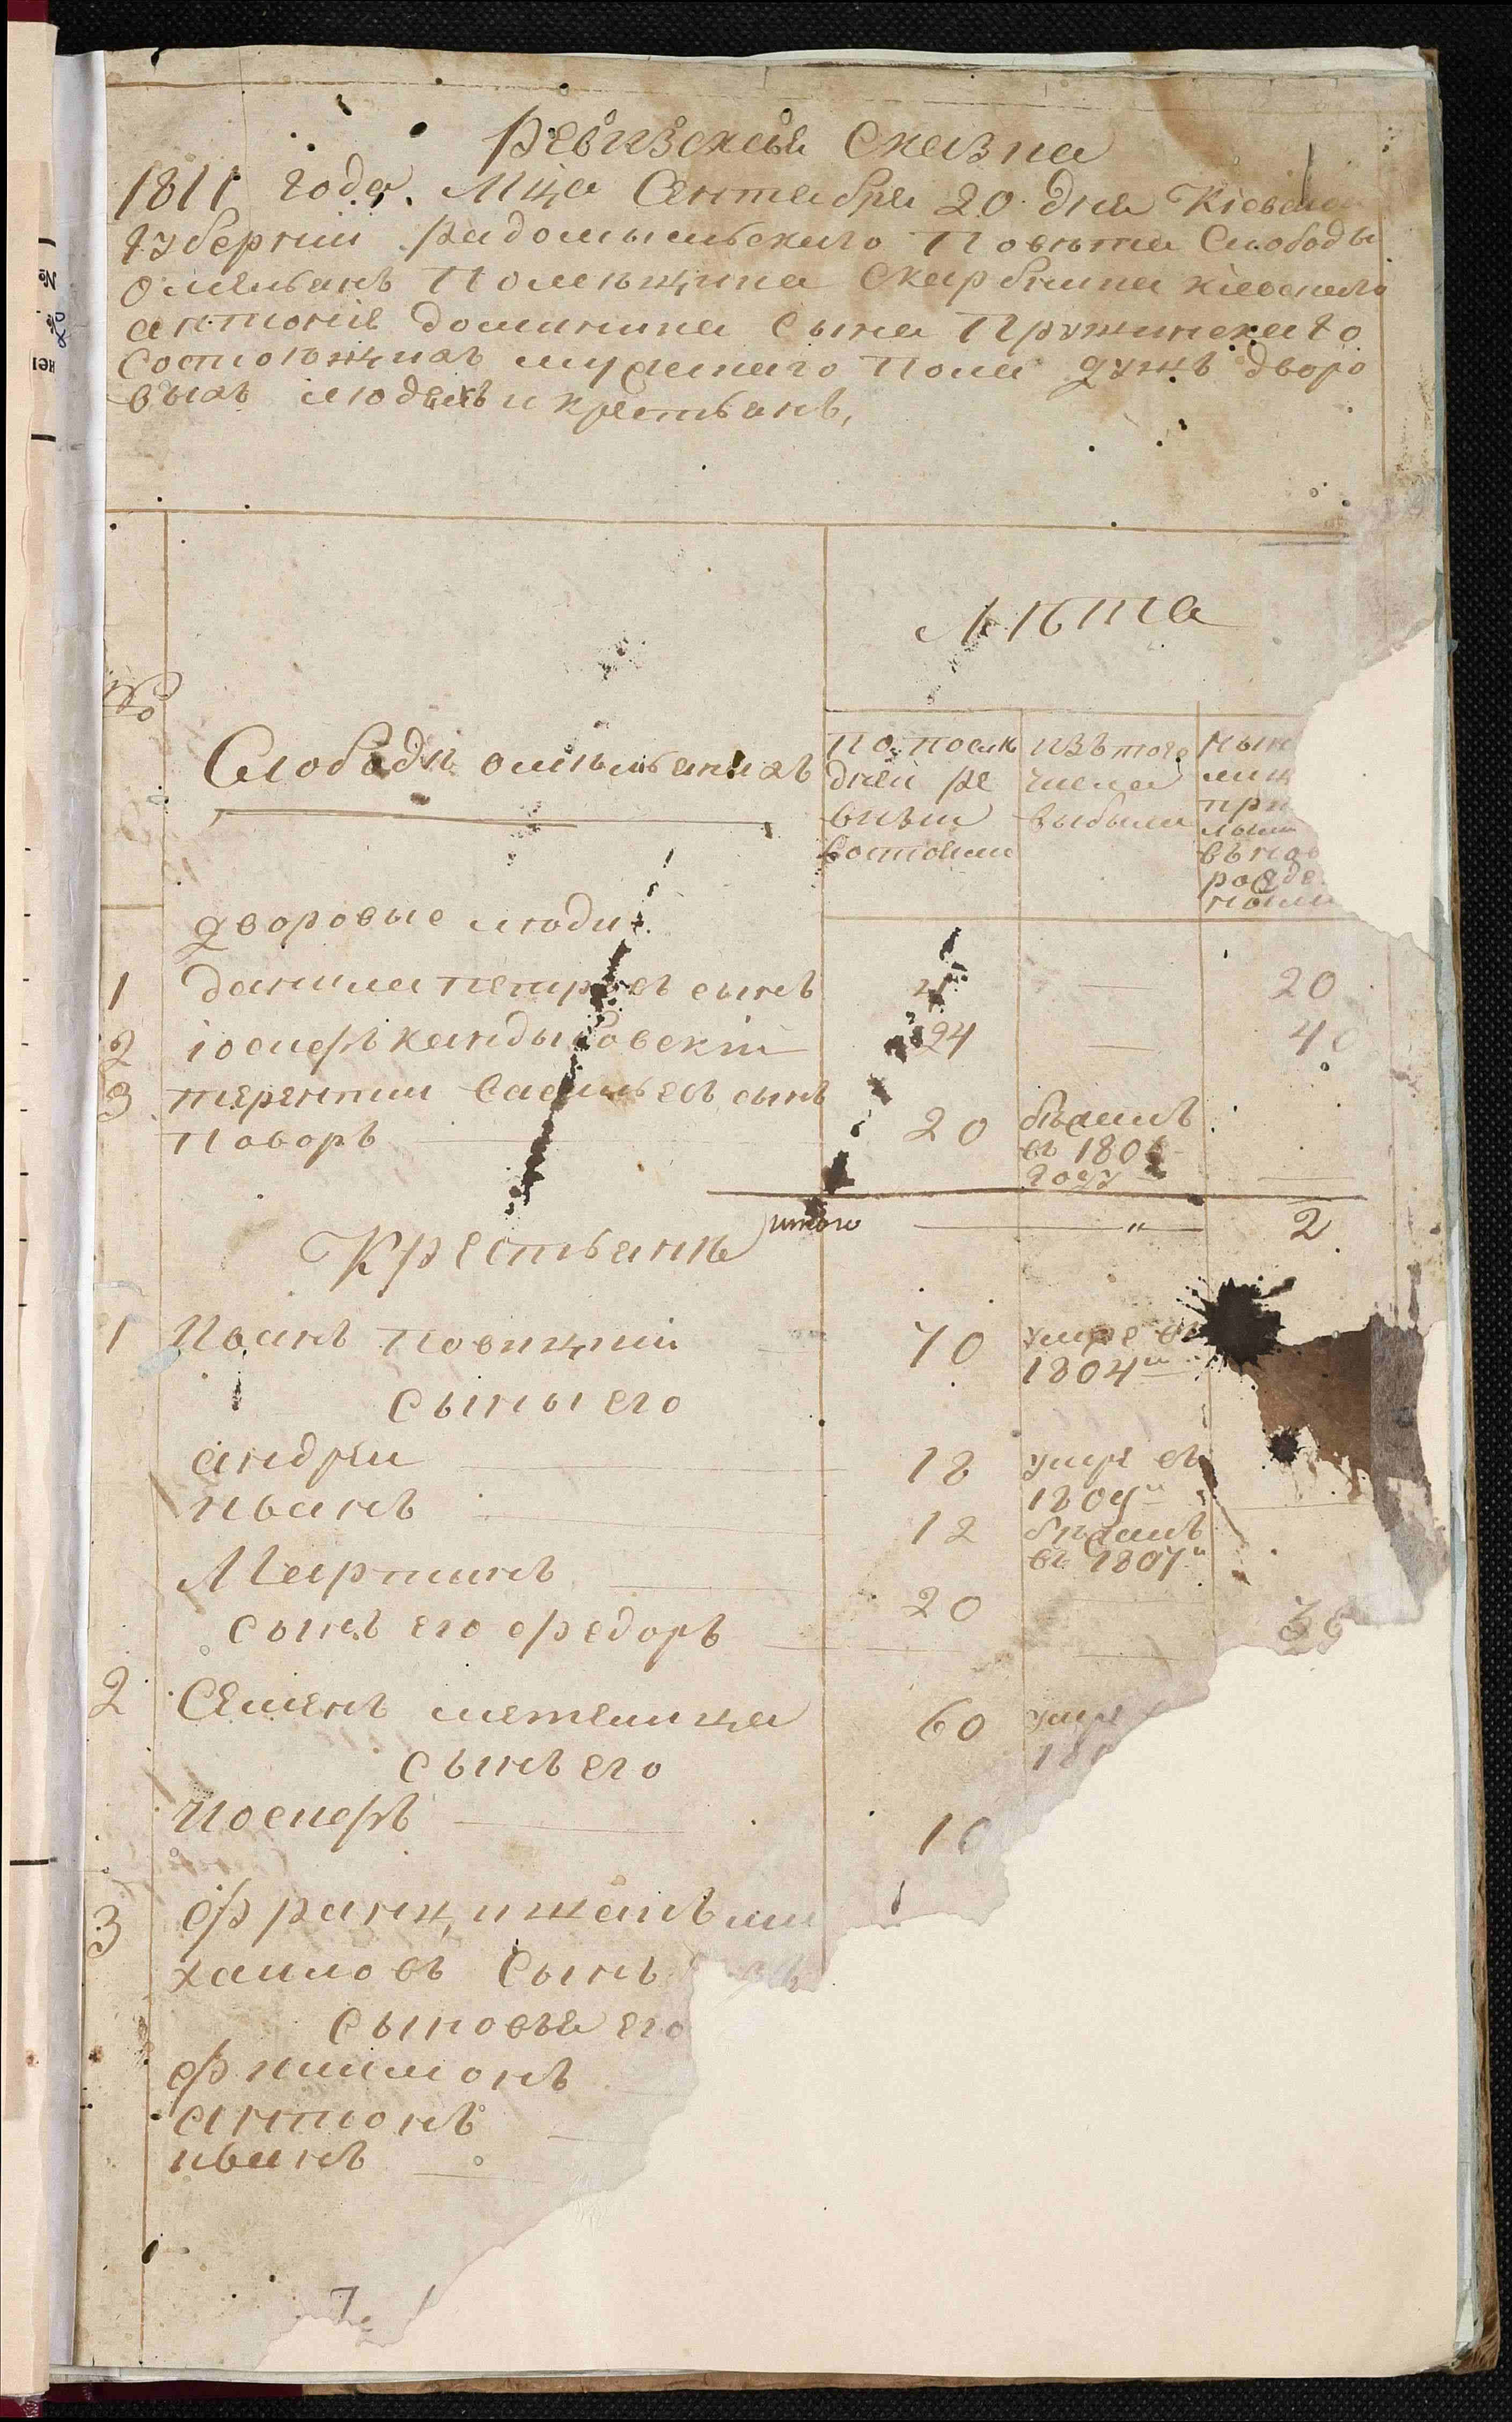 Ревизская Сказка
1811 года. Мца Сентября 20 дня Кіевской
губернии Радомысльскаго Повѣта Слободы
Омельянъ Помѣщика Скарбника кіевскаго
антонія доминика Сына Пружинскаго
Состоящихъ мужескаго Пола душъ дворо
выхъ людяхъ и крестьянъ,
Лѣта
№
Слободы омельянихъ
По послѣ
дней ре
визіи
состояли
изъ того
числа
выбыли
ныне
дворовые люди
1 данила петровъ сынъ 20
2 іосифъ 24 — 4
3 терентии Васильевъ сынъ
Поворъ 20 бѣжалъ
въ 1806
году
итого — " — 2
Крестьяне
1 Иванъ Повицкий 70 умре въ
1804м
сыны его
андрей 18 умре въ
1809м
иванъ 12 бѣжалъ
въ 1807м
Мартинъ 20 —
сынъ его федоръ
2 Семенъ метелица 60 умре
18
сынъ его
Иосифъ 10
3 францишекъ ми
хаиловъ Сынъ
сыновья его
филимонъ
антонъ
иванъ
7